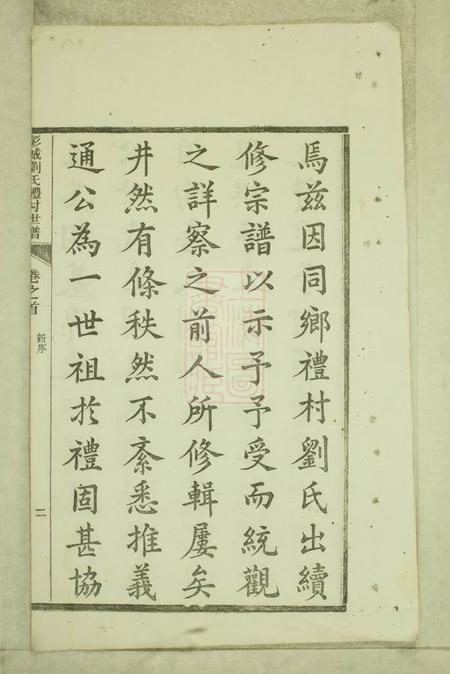 焉茲因同鄉禮村劉氏出續
修宗譜以示予予受而統觀
之詳察之前人所修輯屢矣
井然有條秩然不紊悉推義
通公為一世祖於禮固甚協
彭城劉氏禮村世譜
卷之首
新序
二